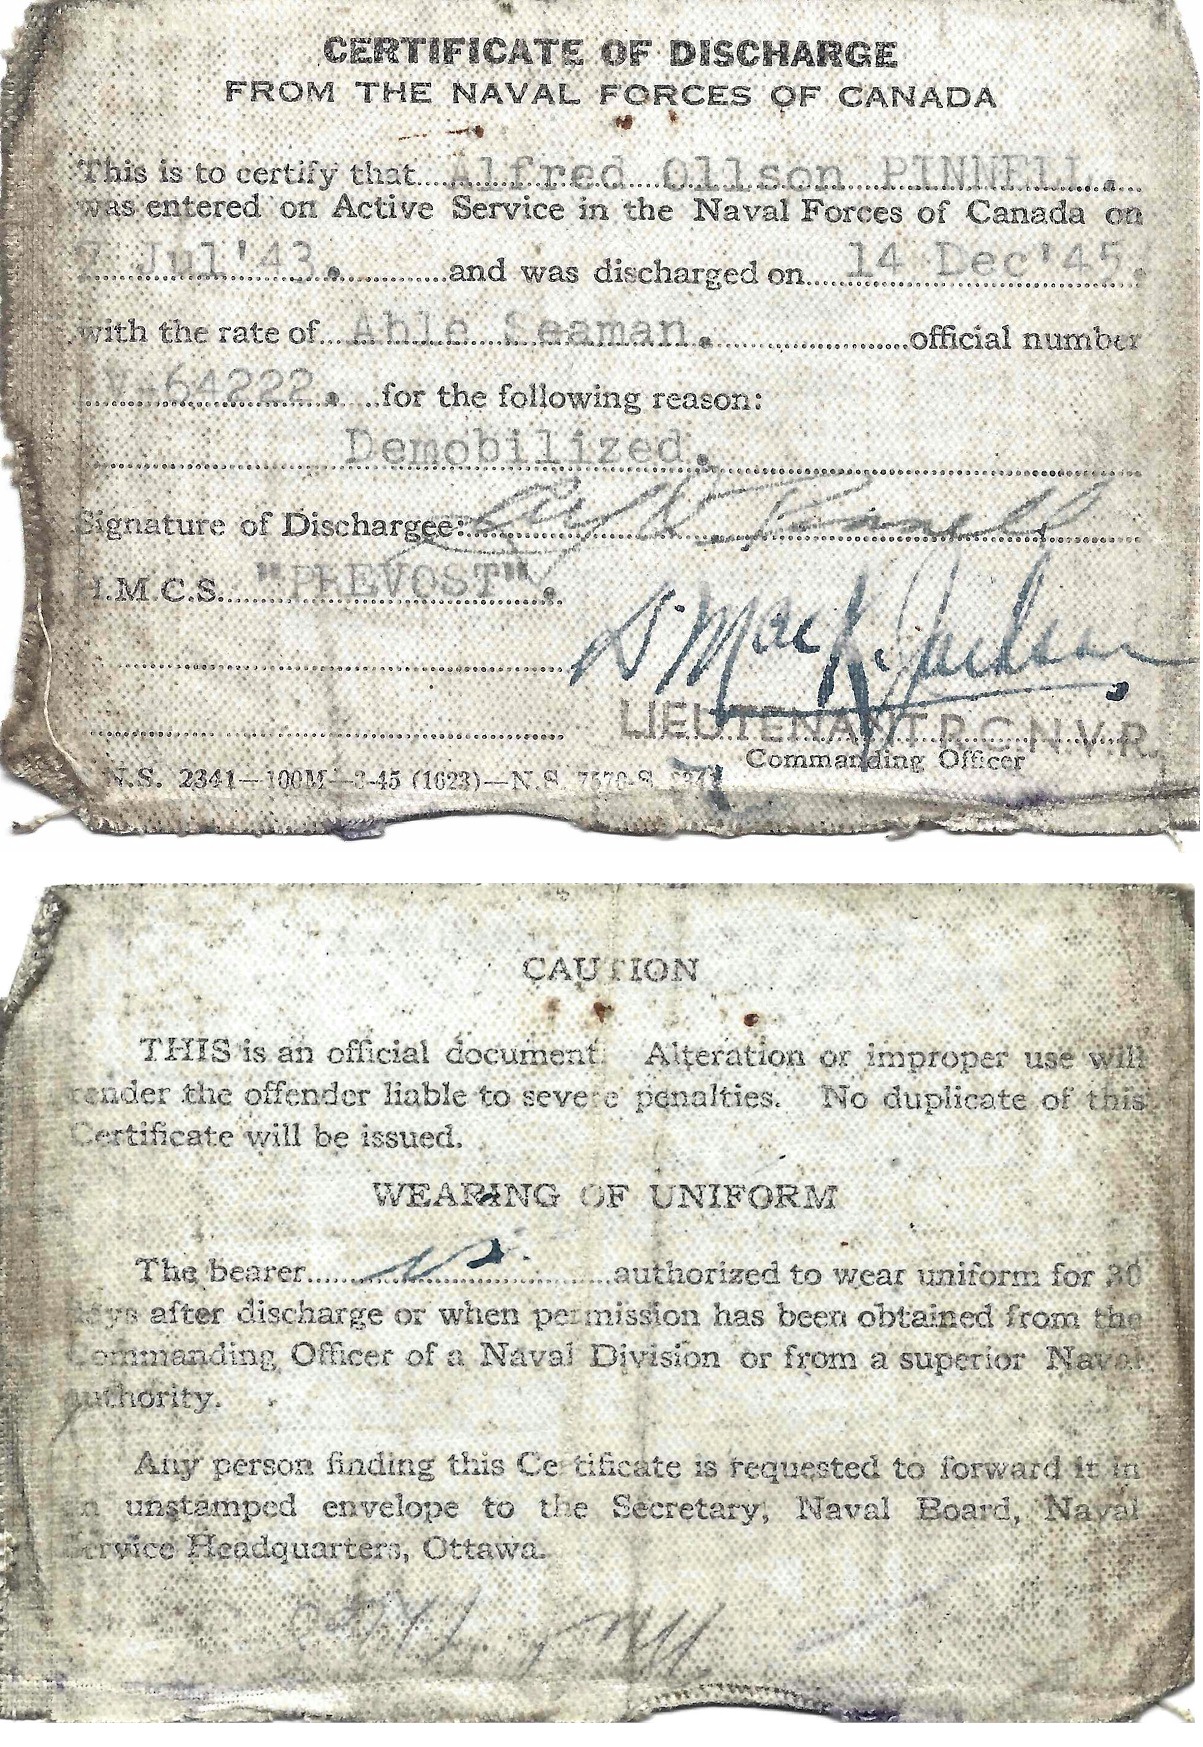 CERTIFICATE OF DISCHARGE
FROM THE NAVAL FORCES OF CANADA
This is to certify that Alfred Ollson PINNELL.
was entered on Active Service in the Naval Forces of Canada on
7 Jul'43. and was discharged on 14 Dec'45.
with the rate of Able Seaman. official number
V-64222. for the following reason:
Demobilized.
Signature of Dischargee: Alf O. Pinnell
H.M.C.S. "PREVOST".
D MacK. Jackson
LIEUTENANT R.C.N.V.R.
Commanding Officer
N.S. 2341—100M—3-45 (1623)—N.S.
CAUTION
THIS is an official document. Alteration or improper use will
render the offender liable to severe penalties. No duplicate of this
Certificate will be issued.
WEARING OF UNIFORM
The bearer is authorized to wear uniform for 30
days after discharge or when permission has been obtained from the
Commanding Officer of a Naval Division or from a superior Naval
authority.
Any person finding this Certificate is requested to forward it in
an unstamped envelope to the Secretary, Naval Board, Naval
Service Headquarters, Ottawa.